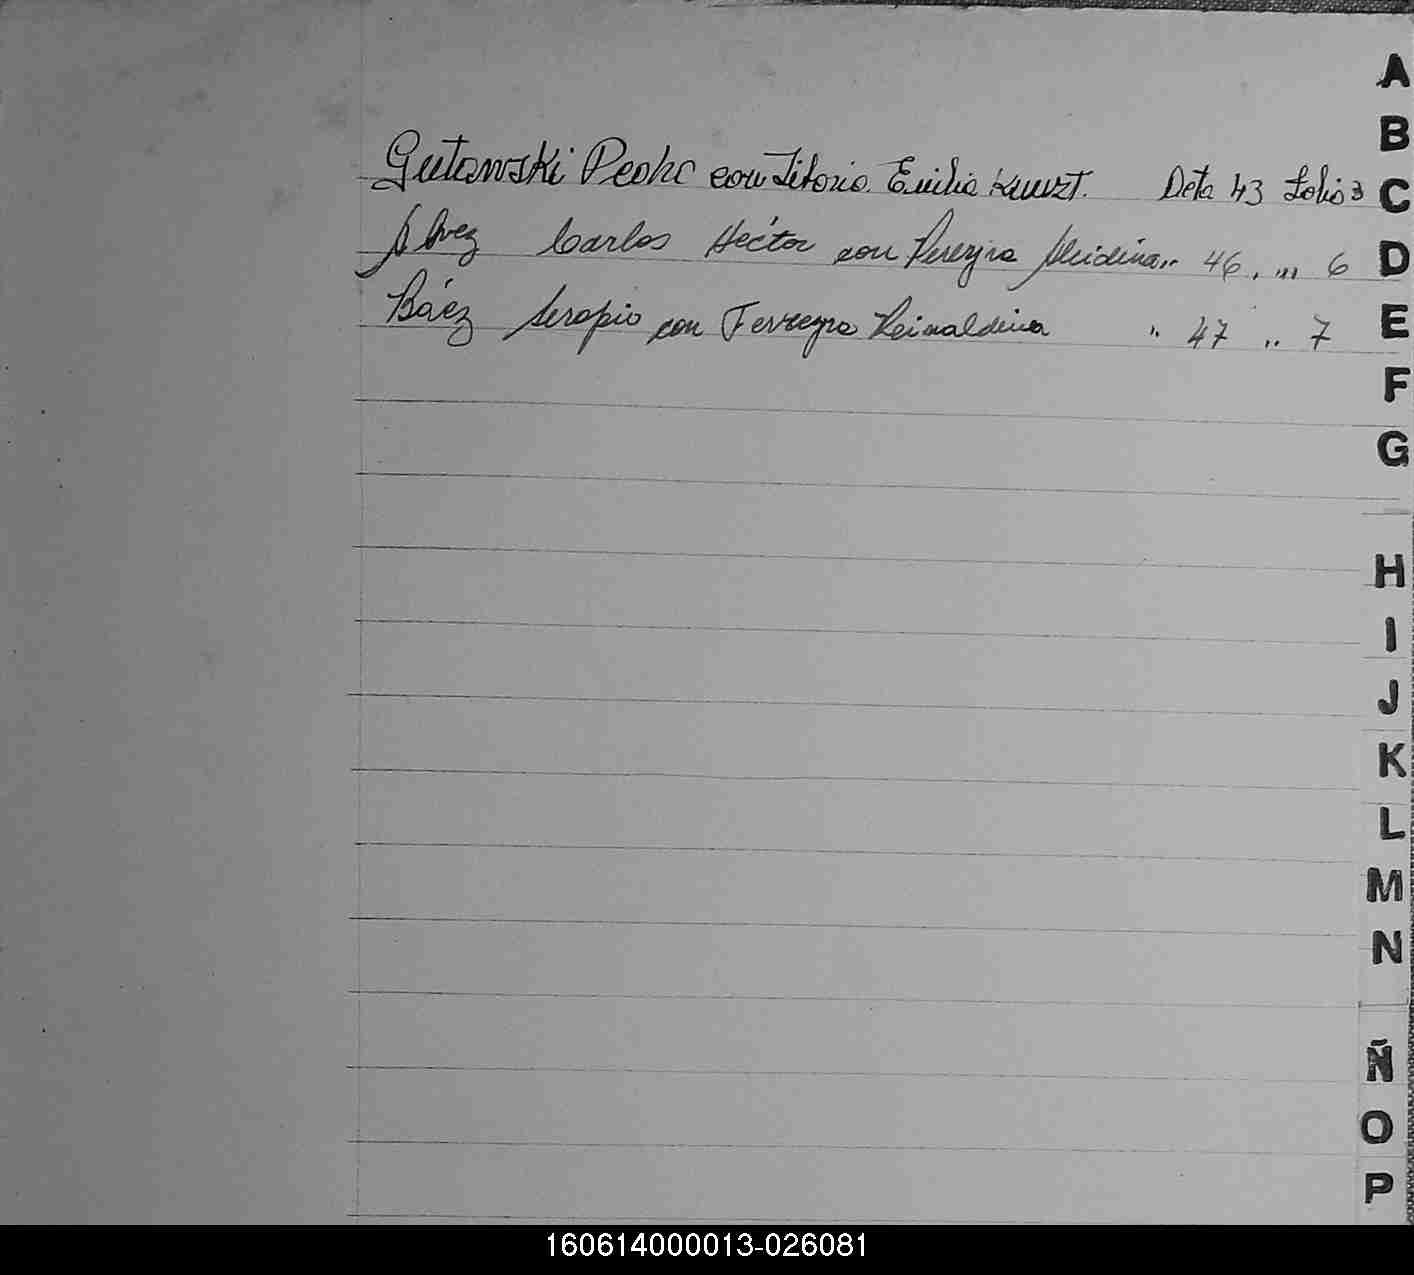 Gutowski Pedro con Titoria Emilia Kunzt. Acta 43 Folio 3
Alvez Carlos Héctor con Pereyra .. 46 . ... 6
Báez Serapio con Ferreyra Reinaldina .. 47 .. 7
A
B
C
D
E
F
G
H
I
J
K
L
M
N
Ñ
O
P
160614000013-026081